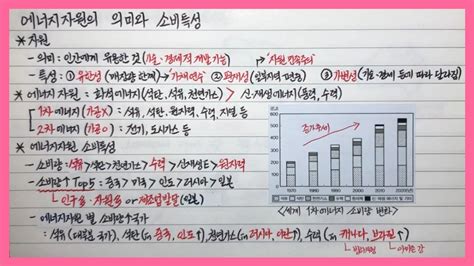 에너지자원의 의미와 소비특성
* 자원
- 의미 : 인간에게 유용한 것 (기술·경제적 개발 가능) → "자원 민족주의"
- 특성 : ① 유한성 (매장량 한계) → "가채연수" ② 편재성 (일부지역 편중) ③ 가변성 (기술·경제 등에 따라 달라짐)
* 에너지자원 : 화석에너지 (석탄, 석유, 천연가스) > 신·재생에너지 (풍력, 수력)
1차 에너지 (가공X) : 석유, 석탄, 원자력, 수력, 지열 등
2차 에너지 (가공O) : 전기, 도시가스 등
* 에너지자원 소비특성
- 소비량 : 석유 > 석탄 > 천연가스 > 수력 > 신재생E > 원자력
- 소비량↑ Top5 : 중국 > 미국 > 인도 > 러시아 > 일본
인구多 자원多 or 제조업발달 (일본)
- 에너지자원 별 소비량↑국가
: 석유 (대부분 국가), 석탄 (in 중국, 인도↑), 천연가스 (in 러시아, 이란↑), 수력 (in 캐나다, 브라질↑)
빙하지형
증가추세
600
500
400
300
200
100
0
1970
1980
1990
2000
2010
2020(년)
<세계 1차에너지 소비량 변화>